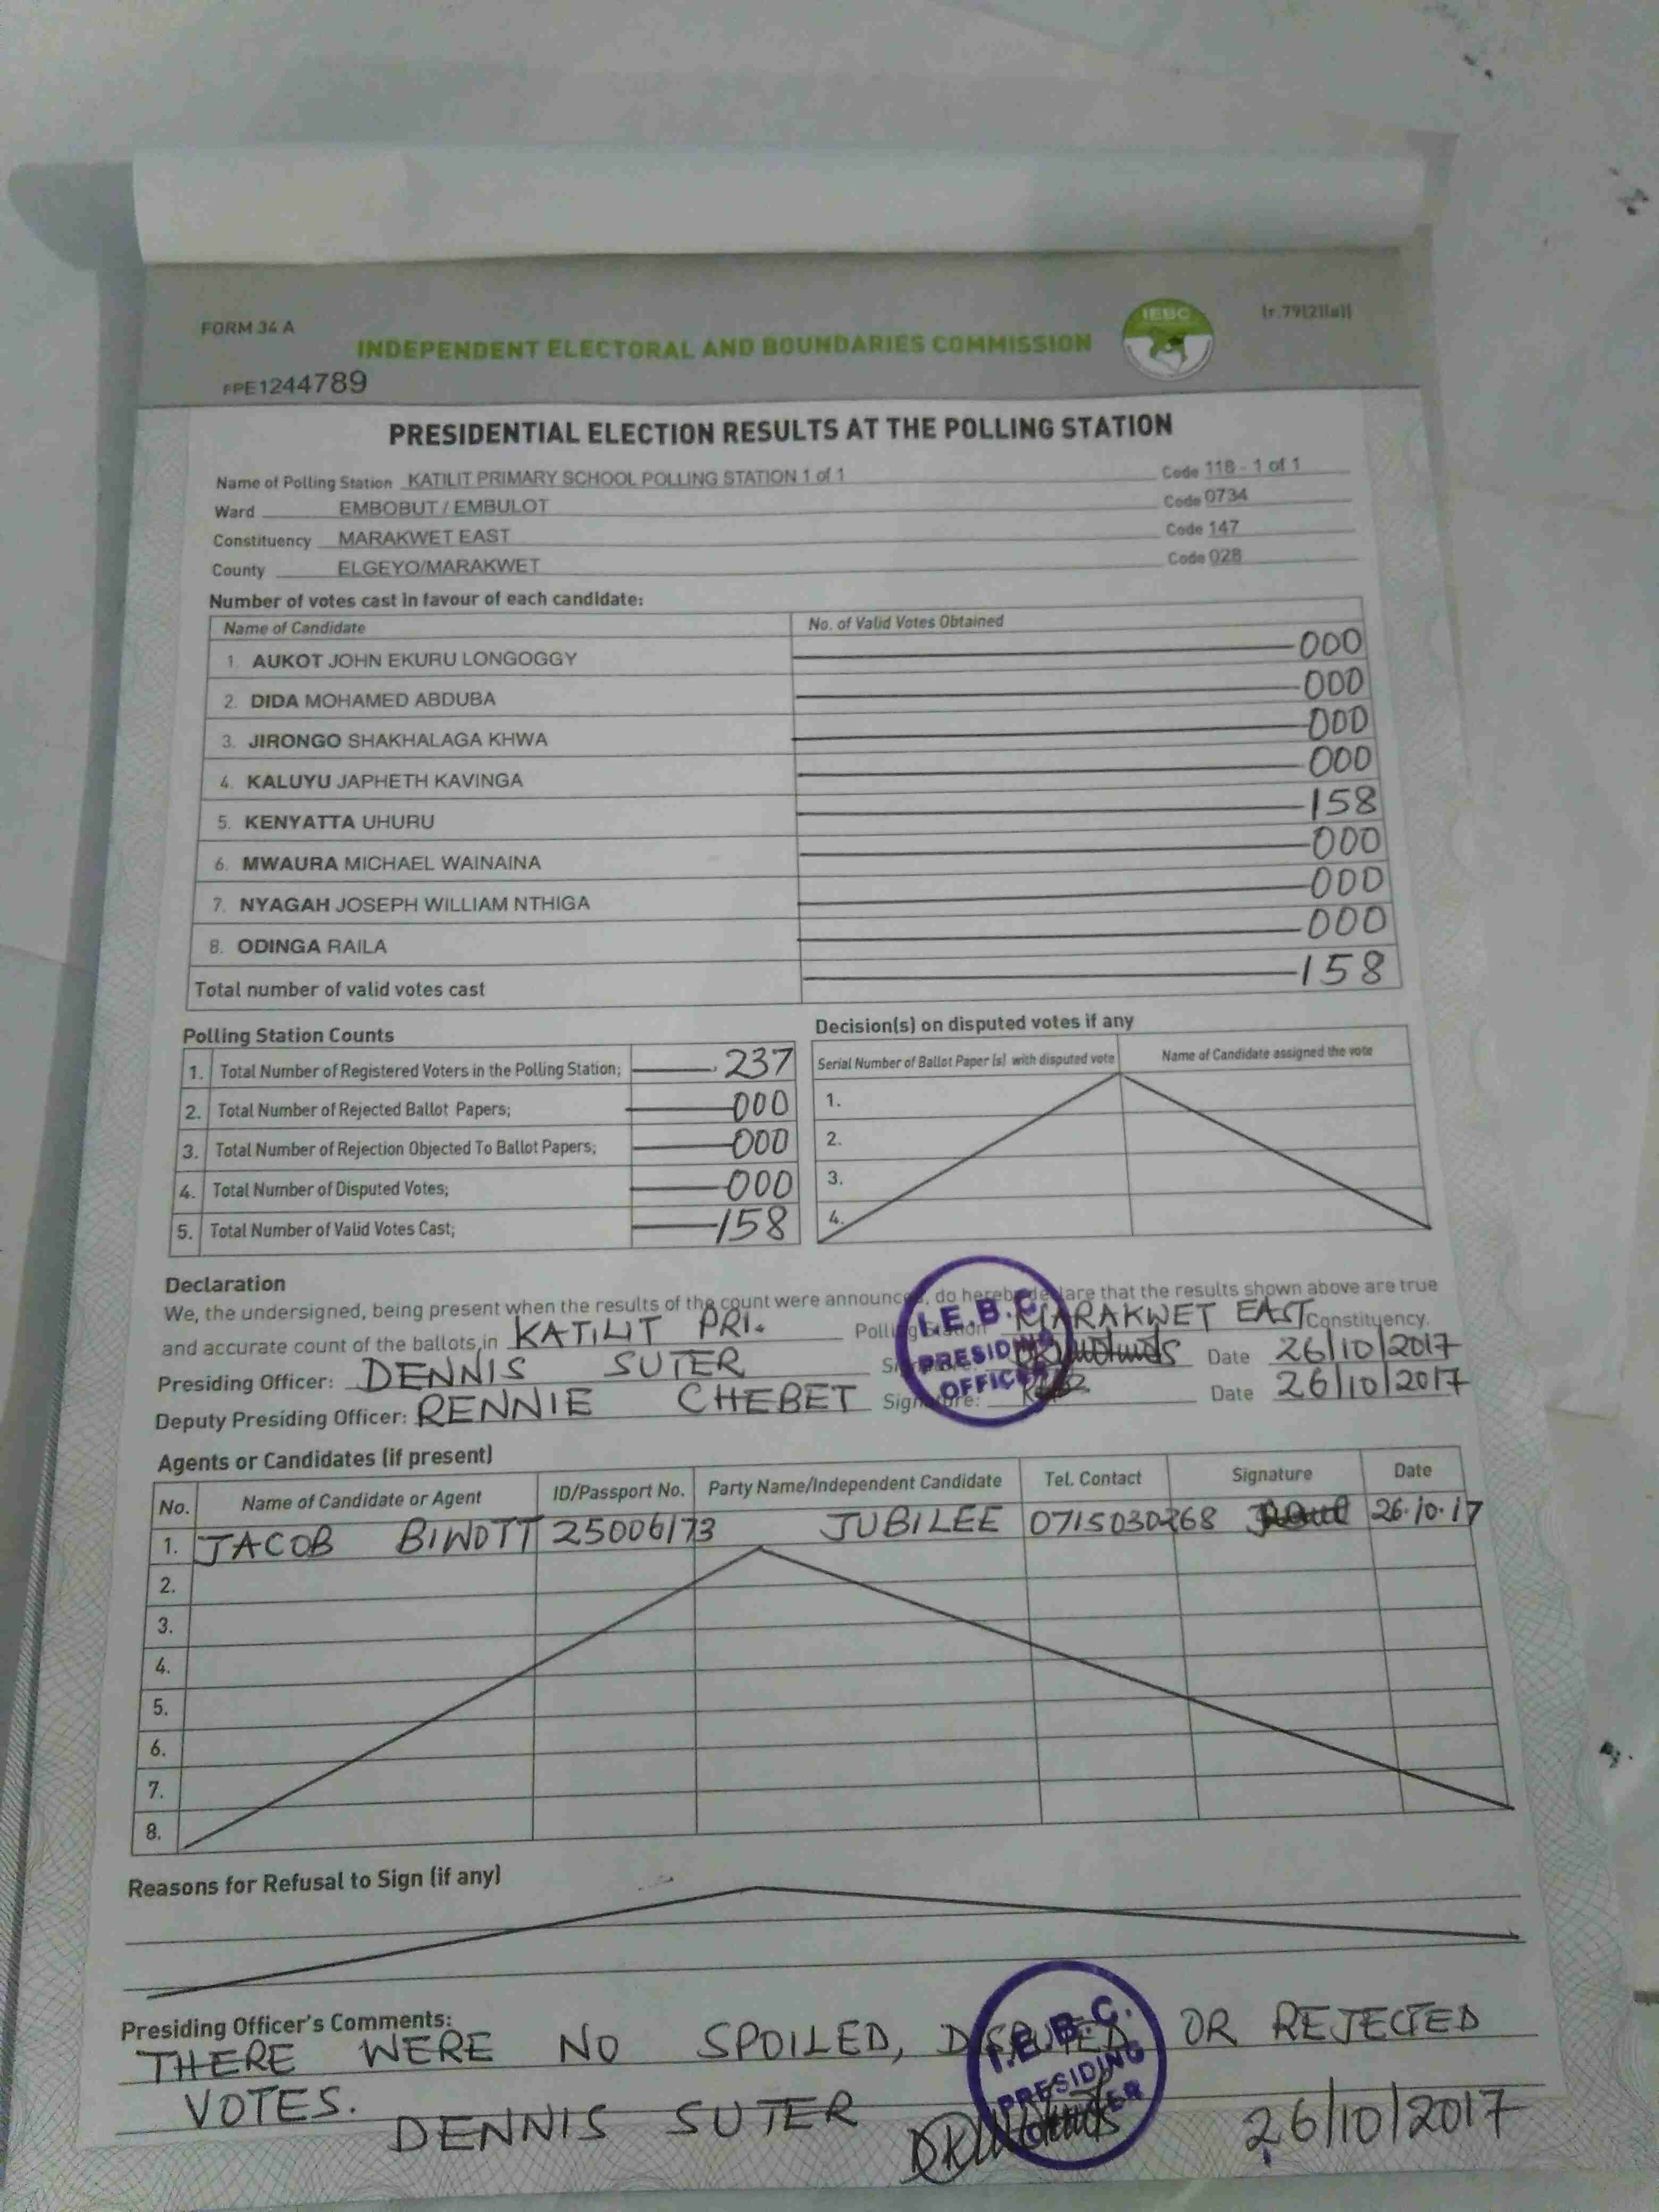 FORM 34 A
IEBC
INDEPENDENT ELECTORAL AND BOUNDARIES COMMISSION
FPE1244789
PRESIDENTIAL ELECTION RESULTS AT THE POLLING STATION
Name of Polling Station KATILIT PRIMARY SCHOOL POLLING STATION 1 of 1 Code 118 - 1 of 1
Ward EMBOBUT / EMBULOT Code 0734
Constituency MARAKWET EAST Code 147
County ELGEYO/MARAKWET Code 028
Number of votes cast in favour of each candidate:
Name of Candidate No. of Valid Votes Obtained
1. AUKOT JOHN EKURU LONGOGGY 000
2. DIDA MOHAMED ABDUBA 000
3. JIRONGO SHAKHALAGA KHWA 000
4. KALUYU JAPHETH KAVINGA 000
5. KENYATTA UHURU 158
6. MWAURA MICHAEL WAINAINA 000
7. NYAGAH JOSEPH WILLIAM NTHIGA 000
8. ODINGA RAILA 000
Total number of valid votes cast 158
Polling Station Counts
1. Total Number of Registered Voters in the Polling Station; 237
2. Total Number of Rejected Ballot Papers; 000
3. Total Number of Rejection Objected To Ballot Papers; 000
4. Total Number of Disputed Votes; 000
5. Total Number of Valid Votes Cast; 158
Decision(s) on disputed votes if any
Serial Number of Ballot Paper (s) with disputed vote Name of Candidate assigned the vote
1.
2.
3.
4.
Declaration
We, the undersigned, being present when the results of the count were announced, do hereby declare that the results shown above are true
and accurate count of the ballots in KATILIT PRI. Polling Station MARAKWET EAST Constituency.
Presiding Officer: DENNIS SUTER Signature: Date 26/10/2017
Deputy Presiding Officer: RENNIE CHEBET Signature: Date 26/10/2017
I.E.B.C.
PRESIDING
OFFICER
Agents or Candidates (if present)
No. Name of Candidate or Agent ID/Passport No. Party Name/Independent Candidate Tel. Contact Signature Date
1. JACOB BIWOTT 25006173 JUBILEE 0715030268 26.10.17
2.
3.
4.
5.
6.
7.
8.
Reasons for Refusal to Sign (if any)
Presiding Officer's Comments:
THERE WERE NO SPOILED, DISPUTED OR REJECTED
VOTES.
DENNIS SUTER 26/10/2017
I.E.B.C.
PRESIDING
OFFICER